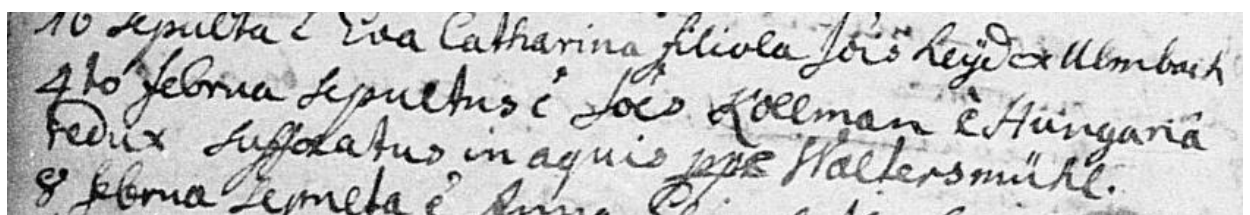 10 sepulta ē Eva Catharina filiola Jois Leyd ex Ulmbach
4to februa sepultus ē Joēs Kollman è Hungariâ
redux suffocatus in aquis ppe Waltersmühl.
8 februa sepulta ē Anna